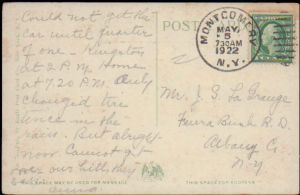 POST CARD
Could not get the
car until quarter
of one - Kingston
at 2 P.M. Home
at 7.20 P.M. Only
changed tire
once in the
rain. But alright
now Cannot get
over our hills, they
THIS SPACE MAY BE USED FOR MESSAGE
MONTGOMERY
MAY
5
730AM
1922
N.Y.
Mr. J. S. La Grange
Feura Bush R.D.
Albany Co.
N-Y